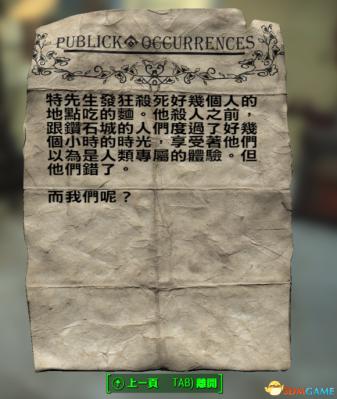 PUBLICK OCCURRENCES
特先生發狂殺死好幾個人的
地點吃的麵。他殺人之前，
跟鑽石城的人們度過了好幾
個小時的時光，享受著他們
以為是人類專屬的體驗。但
他們錯了。
而我們呢？
上一頁 TAB) 離開
3DMGAME